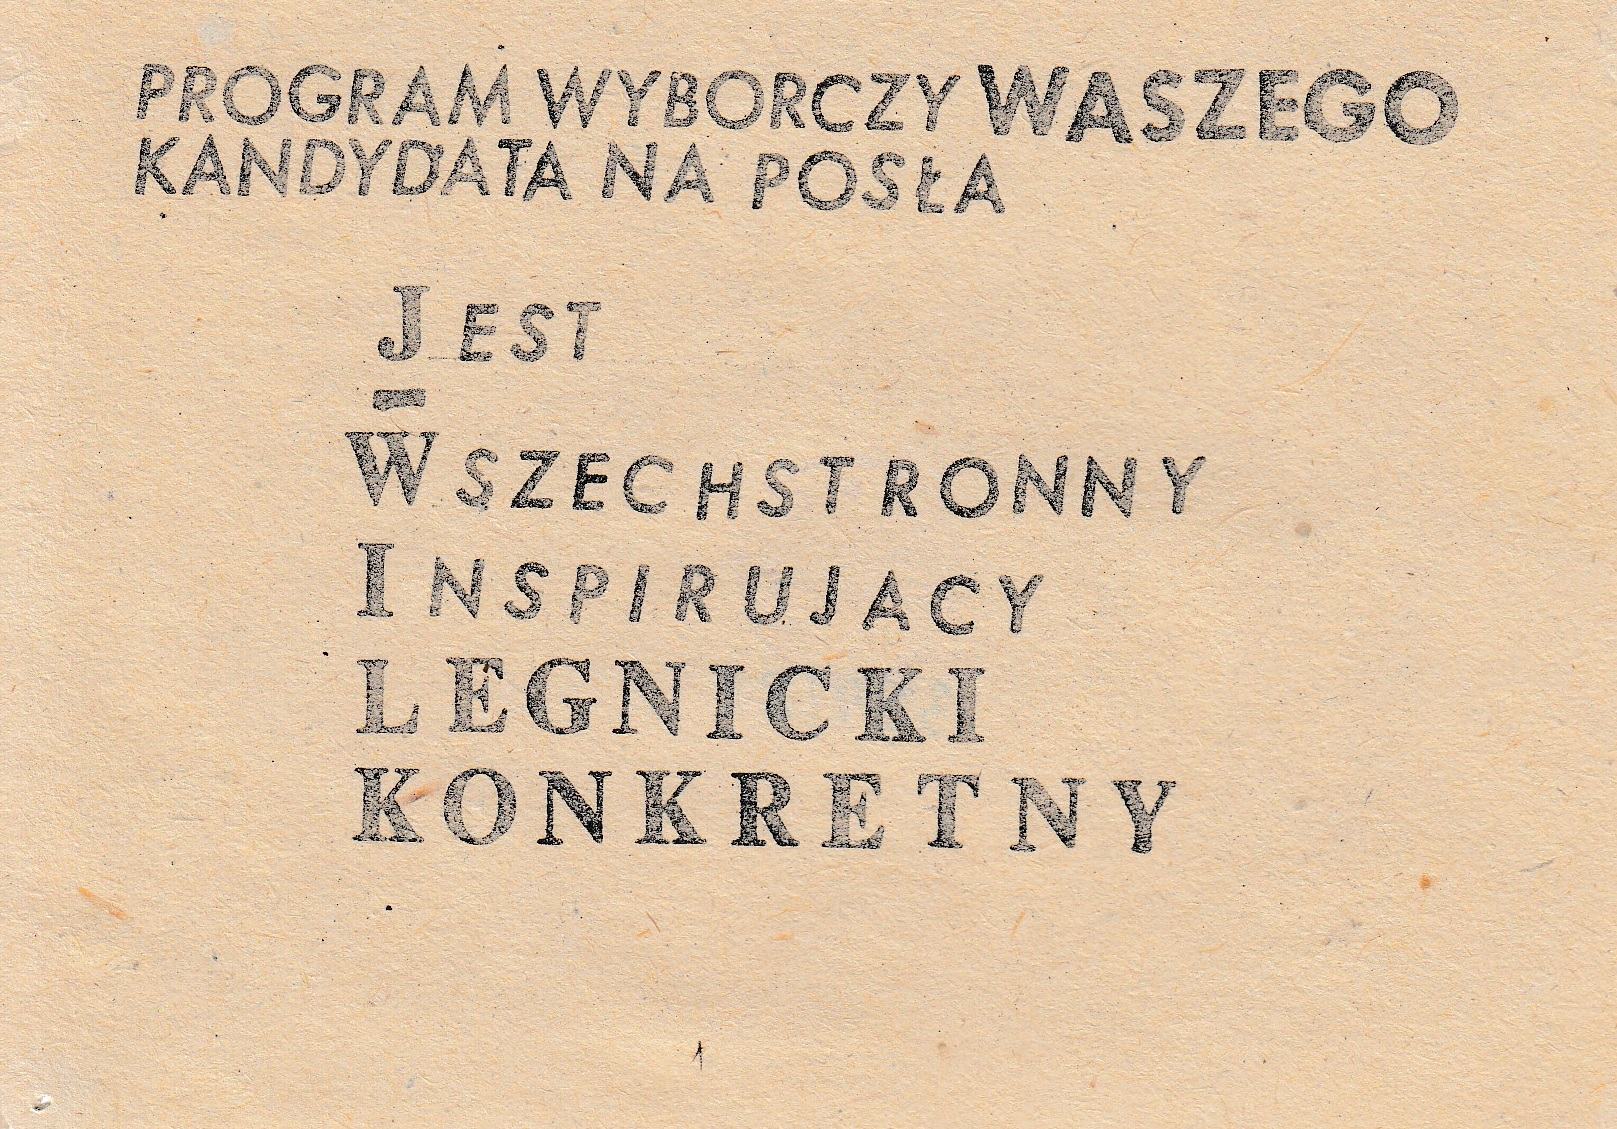 PROGRAM WYBORCZY WASZEGO
KANDYDATA NA POSŁA
JEST
–
WSZECHSTRONNY
INSPIRUJACY
LEGNICKI
KONKRETNY
1